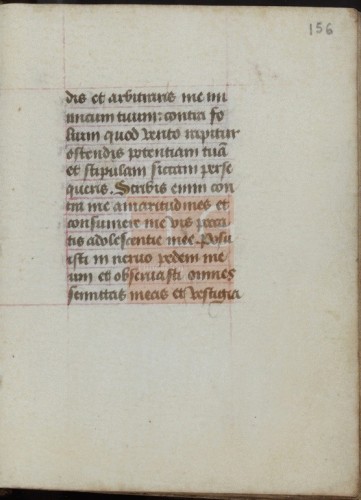 156
dis et arbitraris me ini
micum tuum: contra fo
lium quod vento rapitur
ostendis potentiam tuã
et stipulam siccam perse
queris. Scribis enim con
tra me amaritudines et
consumere me vis pecca
tis adolescentie mee. Posu
isti in nervo pedem me
um et observasti omnes
semitas meas et vestigia